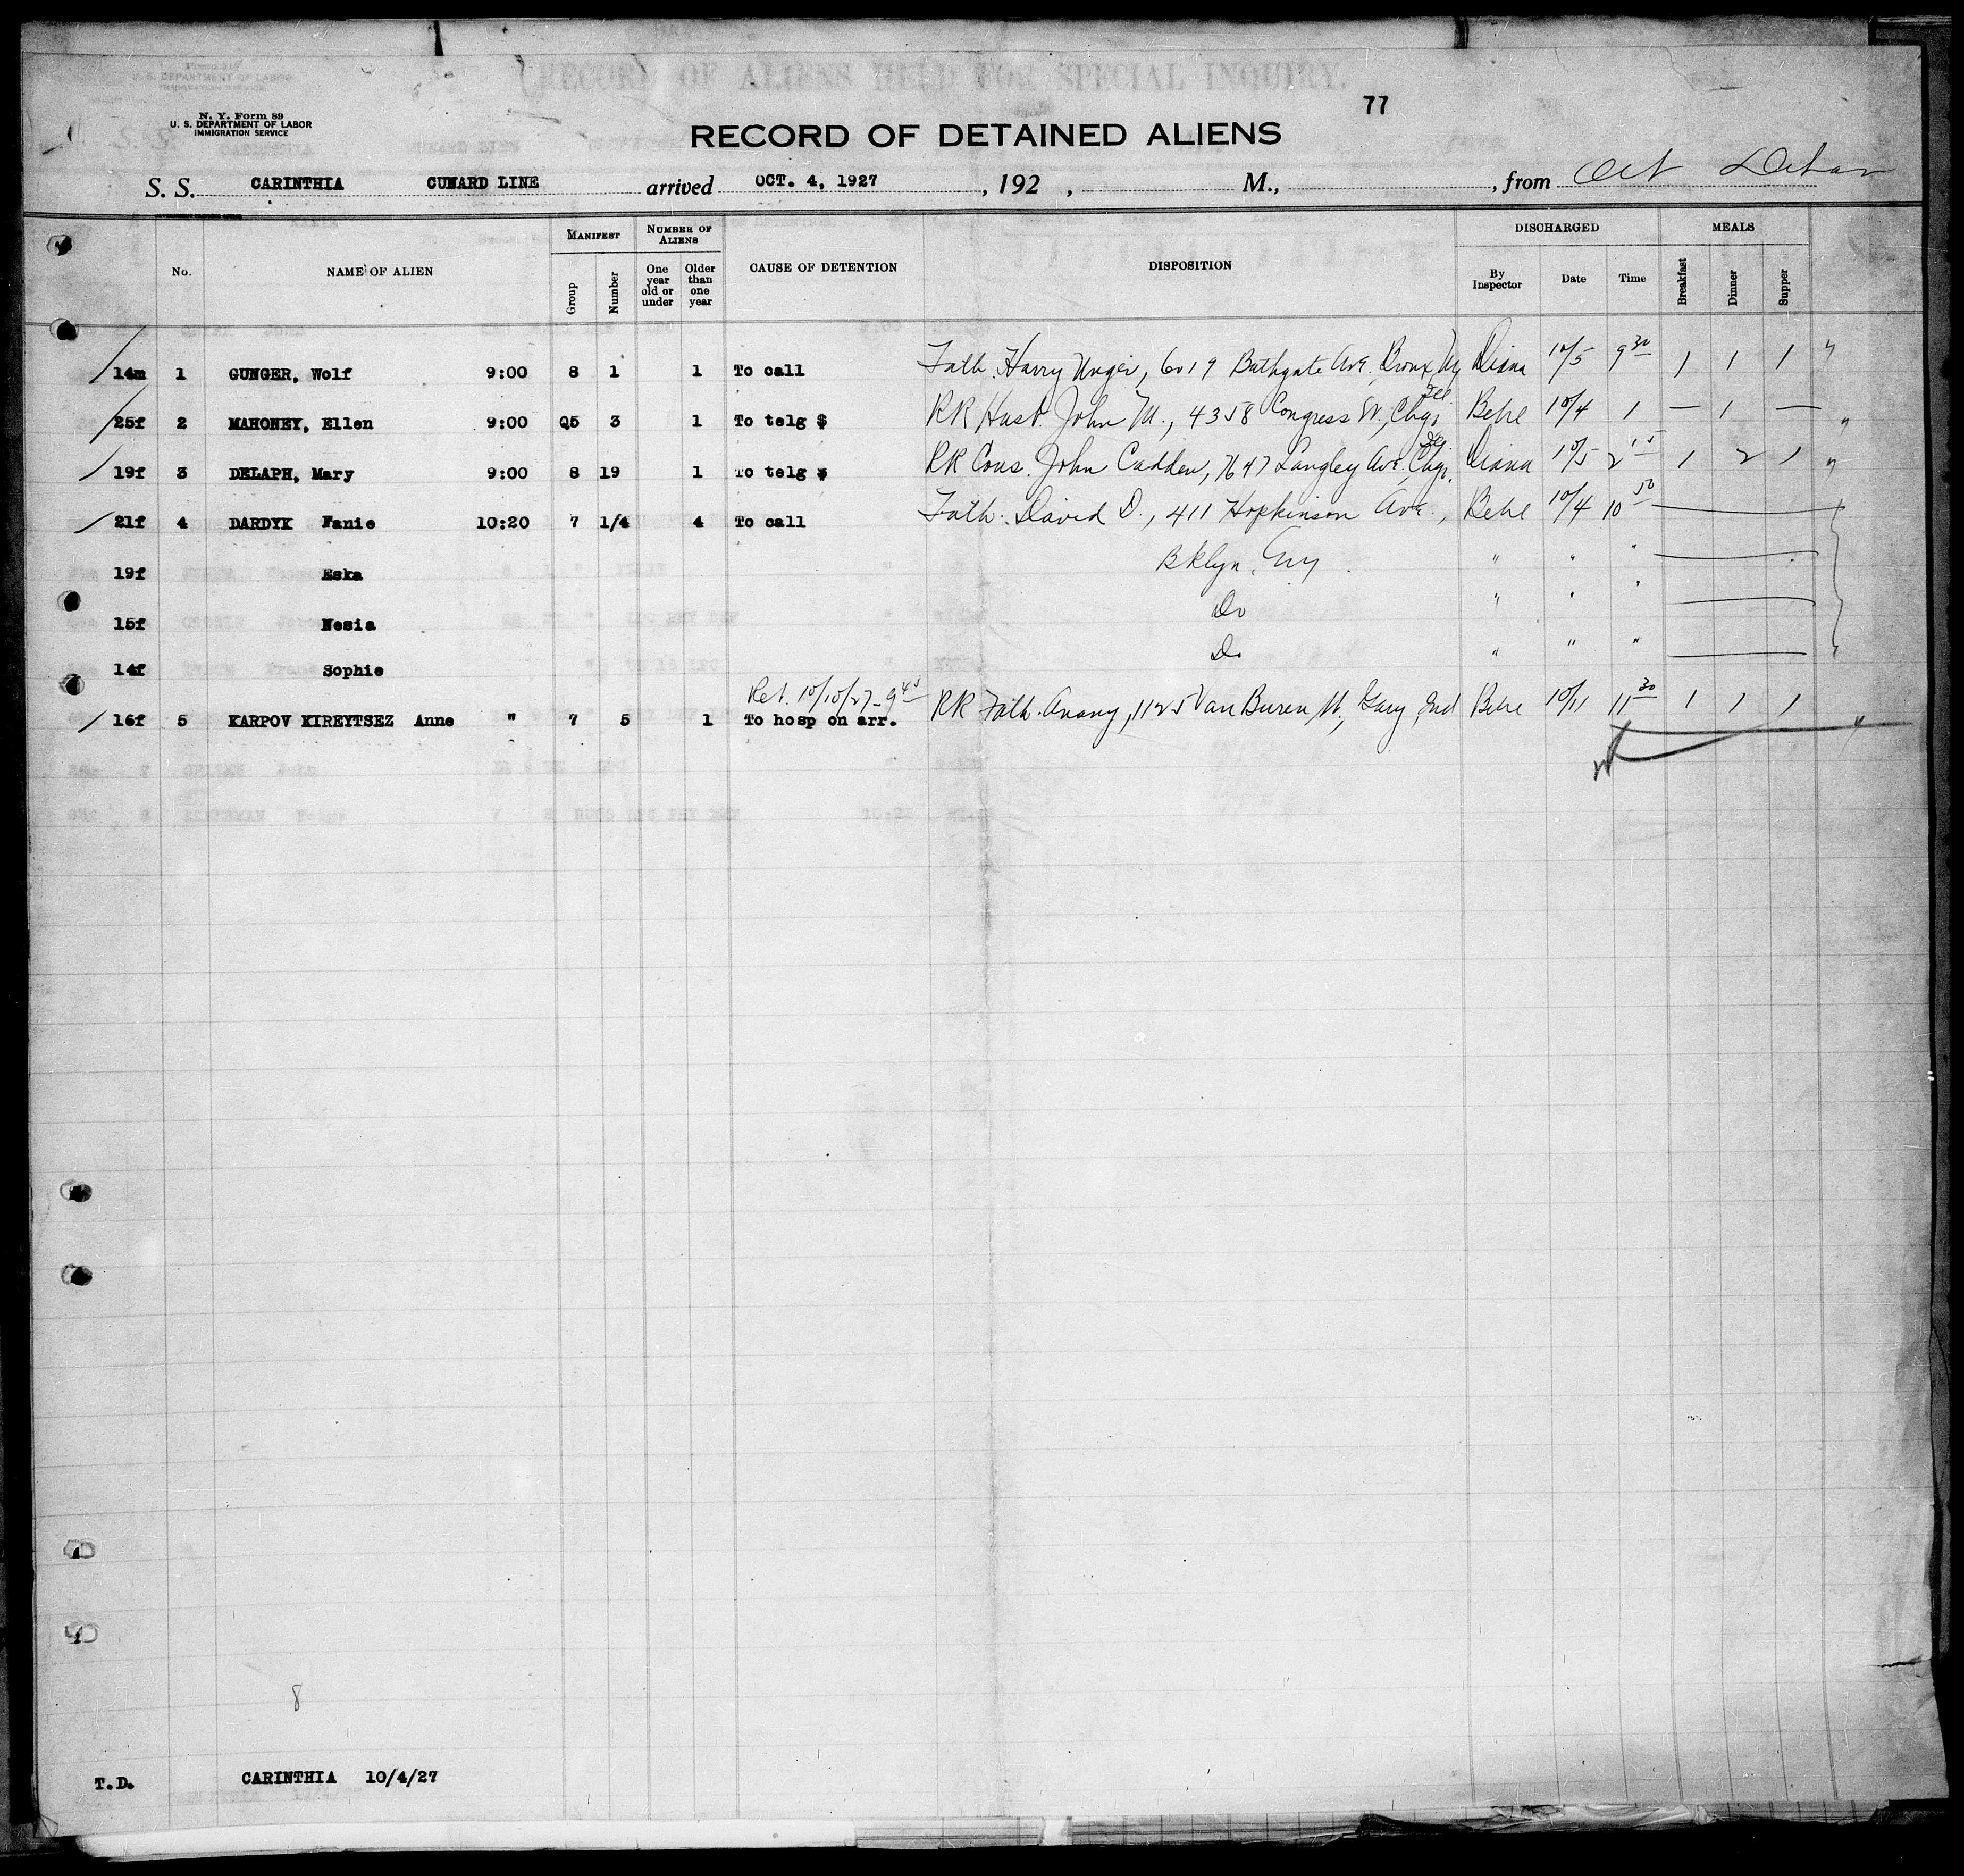 77
N. Y. Form 89
U. S. DEPARTMENT OF LABOR
IMMIGRATION SERVICE
RECORD OF ALIENS HELD FOR SPECIAL INQUIRY.
RECORD OF DETAINED ALIENS
S. S. CARINTHIA CUNARD LINE arrived OCT. 4, 1927, 192 , M., from
No. NAME OF ALIEN MANIFEST Group Number NUMBER OF ALIENS One year old or under Older than one year CAUSE OF DETENTION DISPOSITION DISCHARGED By Inspector Date Time MEALS Breakfast Dinner Supper
14m 1 GUNGER, Wolf 9:00 8 1 1 To call Fath. Harry Unger, Bathgate Ave. Bronx, Ny Diana 10/5 9 30 1 1 1 "
25f 2 MAHONEY, Ellen 9:00 Q5 3 1 To telg $ RR Husb. John M., 4358 Congress St., Chgo, Ill Behe 10/4 1 — 1 — "
19f 3 DELAPH, Mary 9:00 8 19 1 To telg $ RR Cous. John Cadden, 7647 Langley Ave. Chgo, Ill Diana 10/5 2 15 1 2 1 "
21f 4 DARDYK Fanie 10:20 7 1/4 4 To call Fath. David D., 411 Hopkinson Ave., Behe 10/4 10 50
19f Eska Bklyn, Ny " " "
15f Nesia Do " " "
14f Sophie Do " " "
Ret. 10/10/27 - 9 45
16f 5 KARPOV KIREYTSEZ Anne " 7 5 1 To hosp on arr. RR Fath. Anany, 1125 Van Buren St., Gary, Ind Behe 10/11 11 30 1 1 1 "
8
T.D. CARINTHIA 10/4/27